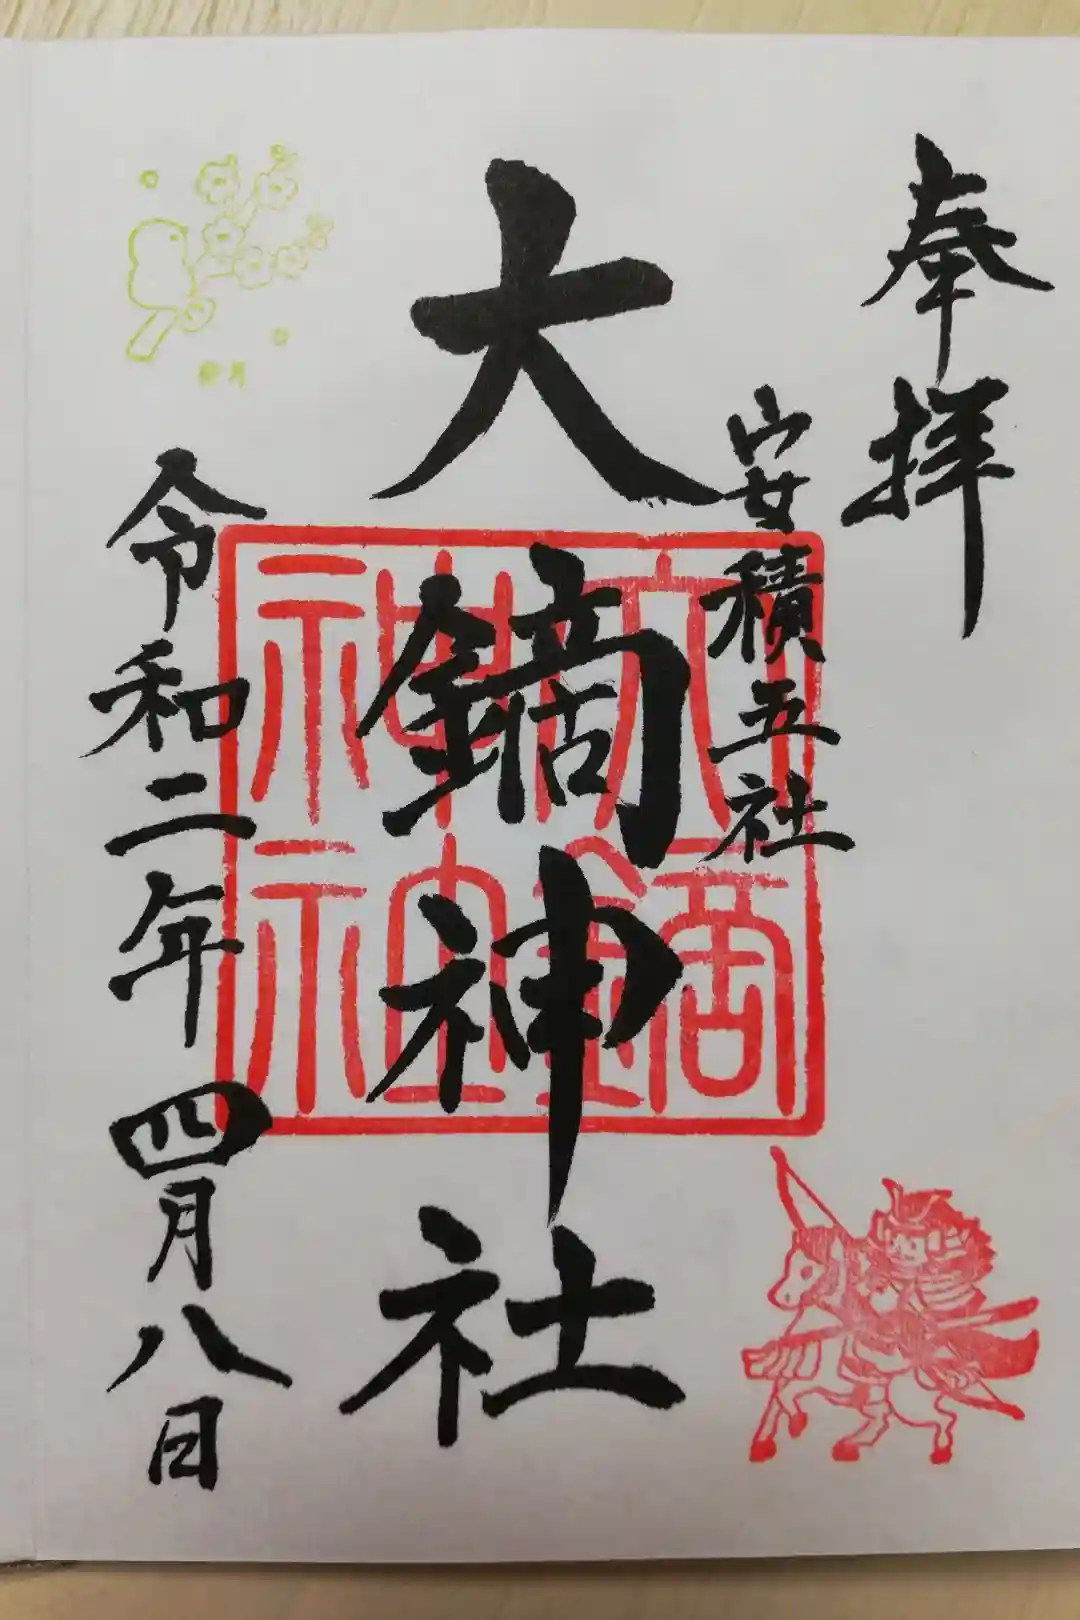 奉拝
安積五社
大鏑神社
大鏑神社
令和二年四月八日
卯月